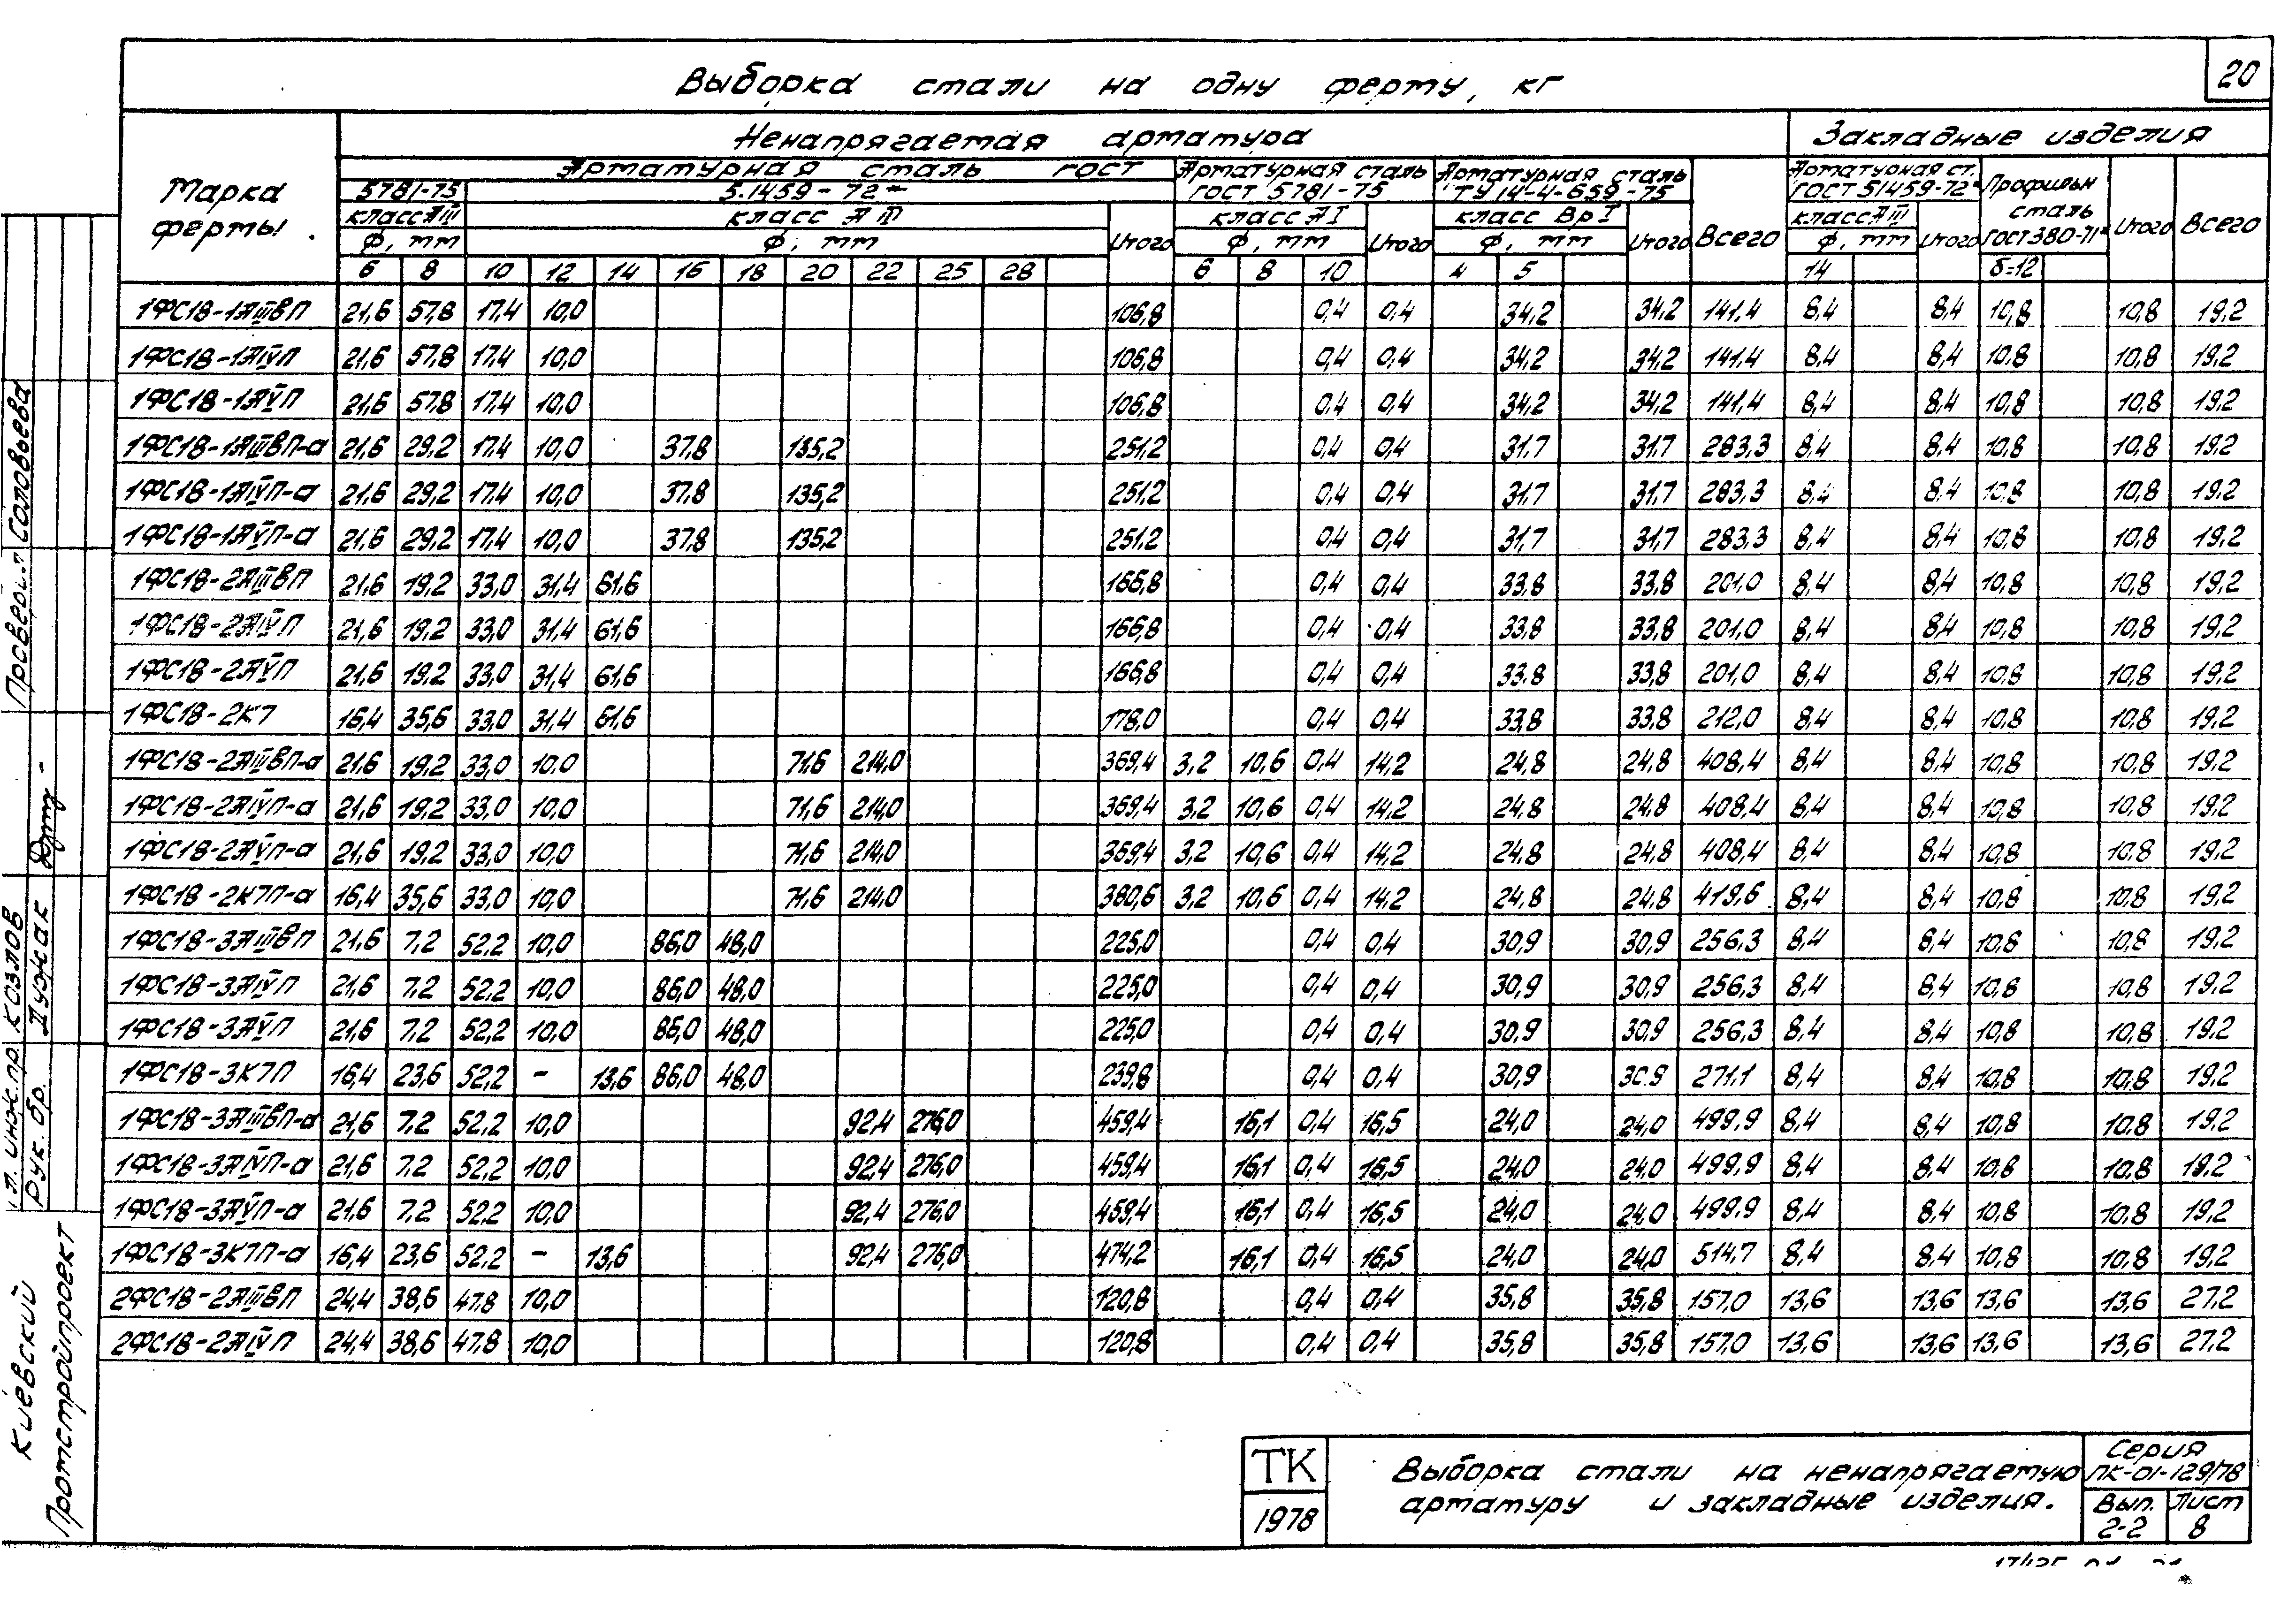 20
Выборка стали на одну ферму, кг
Марка фермы
Ненапрягаемая арматура
Закладные изделия
Арматурная сталь ГОСТ
5781-75 5.1459-72*
класс АIII класс АIII Итого
ф, мм ф, мм
6 8 10 12 14 16 18 20 22 25 28
Арматурная сталь ГОСТ 5781-75
класс АI Итого
ф, мм
6 8 10
Арматурная сталь ТУ 14-4-659-75
класс ВрI Итого
ф, мм
4 5
Всего
Арматурная ст. ГОСТ 51459-72*
класс АIII Итого
ф, мм
14
Профильн сталь ГОСТ 380-71* Итого
δ=12
Всего
1ФС18-1АIIIвП 21,6 57,8 17,4 10,0 106,8 0,4 0,4 34,2 34,2 141,4 8,4 8,4 10,8 10,8 19,2
1ФС18-1АIVП 21,6 57,8 17,4 10,0 106,8 0,4 0,4 34,2 34,2 141,4 8,4 8,4 10,8 10,8 19,2
1ФС18-1АVП 21,6 57,8 17,4 10,0 106,8 0,4 0,4 34,2 34,2 141,4 8,4 8,4 10,8 10,8 19,2
1ФС18-1АIIIвП-а 21,6 29,2 17,4 10,0 37,8 135,2 251,2 0,4 0,4 31,7 31,7 283,3 8,4 8,4 10,8 10,8 19,2
1ФС18-1АIVП-а 21,6 29,2 17,4 10,0 37,8 135,2 251,2 0,4 0,4 31,7 31,7 283,3 8,4 8,4 10,8 10,8 19,2
1ФС18-1АVП-а 21,6 29,2 17,4 10,0 37,8 135,2 251,2 0,4 0,4 31,7 31,7 283,3 8,4 8,4 10,8 10,8 19,2
1ФС18-2АIIIвП 21,6 19,2 33,0 31,4 61,6 166,8 0,4 0,4 33,8 33,8 201,0 8,4 8,4 10,8 10,8 19,2
1ФС18-2АIVП 21,6 19,2 33,0 31,4 61,6 166,8 0,4 0,4 33,8 33,8 201,0 8,4 8,4 10,8 10,8 19,2
1ФС18-2АVП 21,6 19,2 33,0 31,4 61,6 166,8 0,4 0,4 33,8 33,8 201,0 8,4 8,4 10,8 10,8 19,2
1ФС18-2К7 16,4 35,6 33,0 31,4 61,6 178,0 0,4 0,4 33,8 33,8 212,0 8,4 8,4 10,8 10,8 19,2
1ФС18-2АIIIвП-а 21,6 19,2 33,0 10,0 71,6 214,0 369,4 3,2 10,6 0,4 14,2 24,8 24,8 408,4 8,4 8,4 10,8 10,8 19,2
1ФС18-2АIVП-а 21,6 19,2 33,0 10,0 71,6 214,0 369,4 3,2 10,6 0,4 14,2 24,8 24,8 408,4 8,4 8,4 10,8 10,8 19,2
1ФС18-2АVП-а 21,6 19,2 33,0 10,0 71,6 214,0 369,4 3,2 10,6 0,4 14,2 24,8 24,8 408,4 8,4 8,4 10,8 10,8 19,2
1ФС18-2К7П-а 16,4 35,6 33,0 10,0 71,6 214,0 380,6 3,2 10,6 0,4 14,2 24,8 24,8 419,6 8,4 8,4 10,8 10,8 19,2
1ФС18-3АIIIвП 21,6 7,2 52,2 10,0 86,0 48,0 225,0 0,4 0,4 30,9 30,9 256,3 8,4 8,4 10,8 10,8 19,2
1ФС18-3АIVП 21,6 7,2 52,2 10,0 86,0 48,0 225,0 0,4 0,4 30,9 30,9 256,3 8,4 8,4 10,8 10,8 19,2
1ФС18-3АVП 21,6 7,2 52,2 10,0 86,0 48,0 225,0 0,4 0,4 30,9 30,9 256,3 8,4 8,4 10,8 10,8 19,2
1ФС18-3К7П 16,4 23,6 52,2 - 13,6 86,0 48,0 239,8 0,4 0,4 30,9 30,9 271,1 8,4 8,4 10,8 10,8 19,2
1ФС18-3АIIIвП-а 21,6 7,2 52,2 10,0 92,4 276,0 459,4 16,1 0,4 16,5 24,0 24,0 499,9 8,4 8,4 10,8 10,8 19,2
1ФС18-3АIVП-а 21,6 7,2 52,2 10,0 92,4 276,0 459,4 16,1 0,4 16,5 24,0 24,0 499,9 8,4 8,4 10,8 10,8 19,2
1ФС18-3АVП-а 21,6 7,2 52,2 10,0 92,4 276,0 459,4 16,1 0,4 16,5 24,0 24,0 499,9 8,4 8,4 10,8 10,8 19,2
1ФС18-3К7П-а 16,4 23,6 52,2 - 13,6 92,4 276,0 474,2 16,1 0,4 16,5 24,0 24,0 514,7 8,4 8,4 10,8 10,8 19,2
2ФС18-2АIIIвП 24,4 38,6 47,8 10,0 120,8 0,4 0,4 35,8 35,8 157,0 13,6 13,6 13,6 13,6 27,2
2ФС18-2АIVП 24,4 38,6 47,8 10,0 120,8 0,4 0,4 35,8 35,8 157,0 13,6 13,6 13,6 13,6 27,2
Соловьева
Козлов
инж.пр.
Рук. бр. Дужак
Киевский
Промстройпроект
ТК
1978
Выборка стали на ненапрягаемую
арматуру и закладные изделия.
Серия
ПК-01-129/78
Вып. Лист
2-2 8